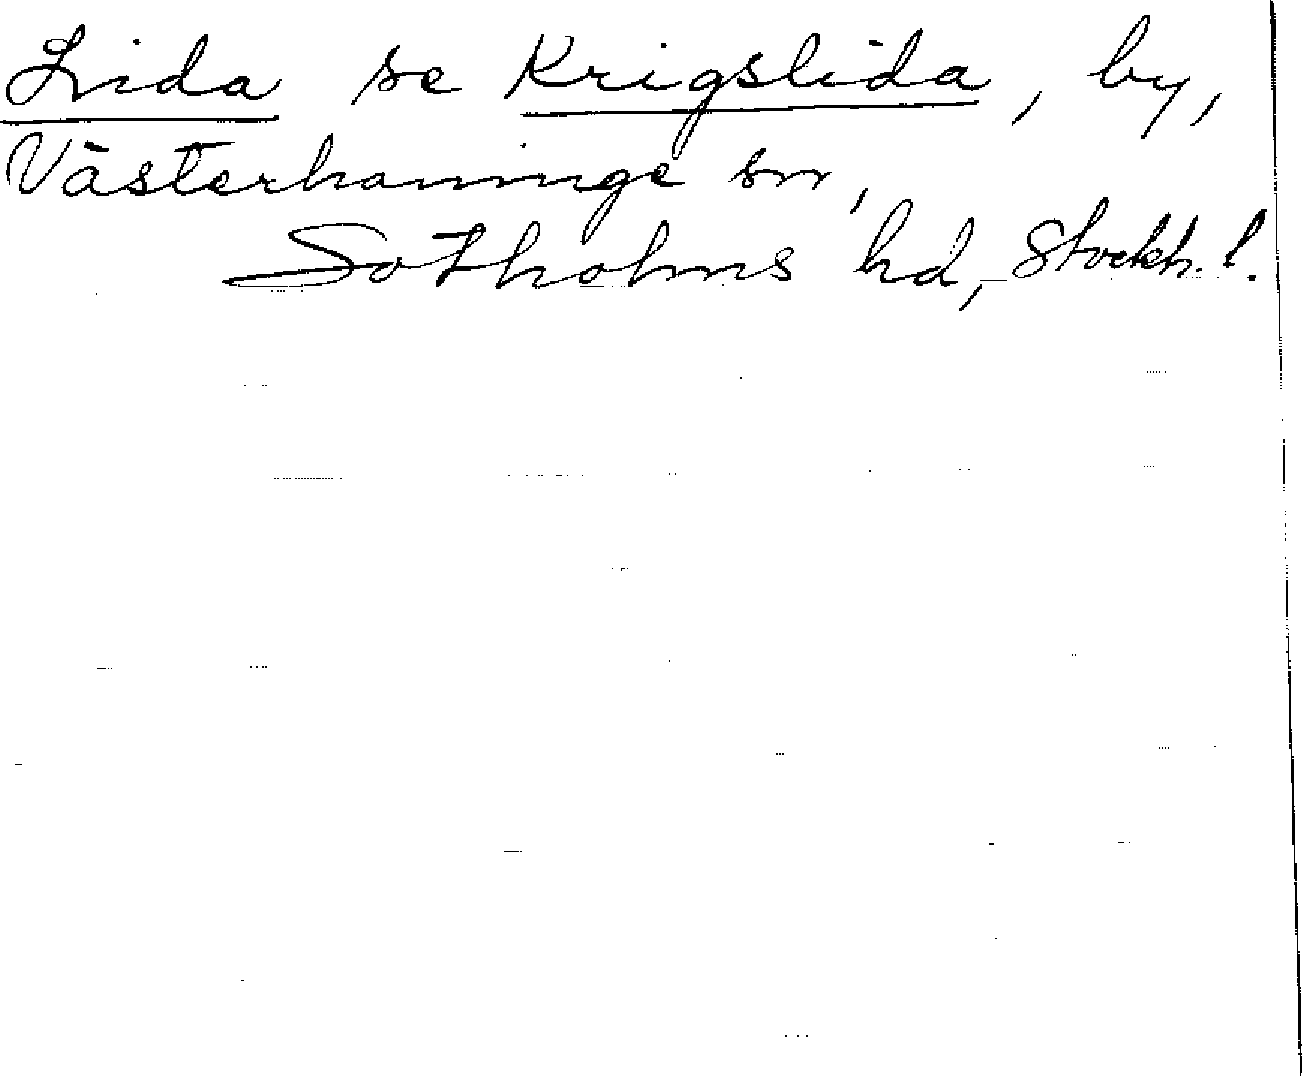 Lida se Krigslida, by,
Västerhaninge sn,
Sotholms hd, Stockh. l.